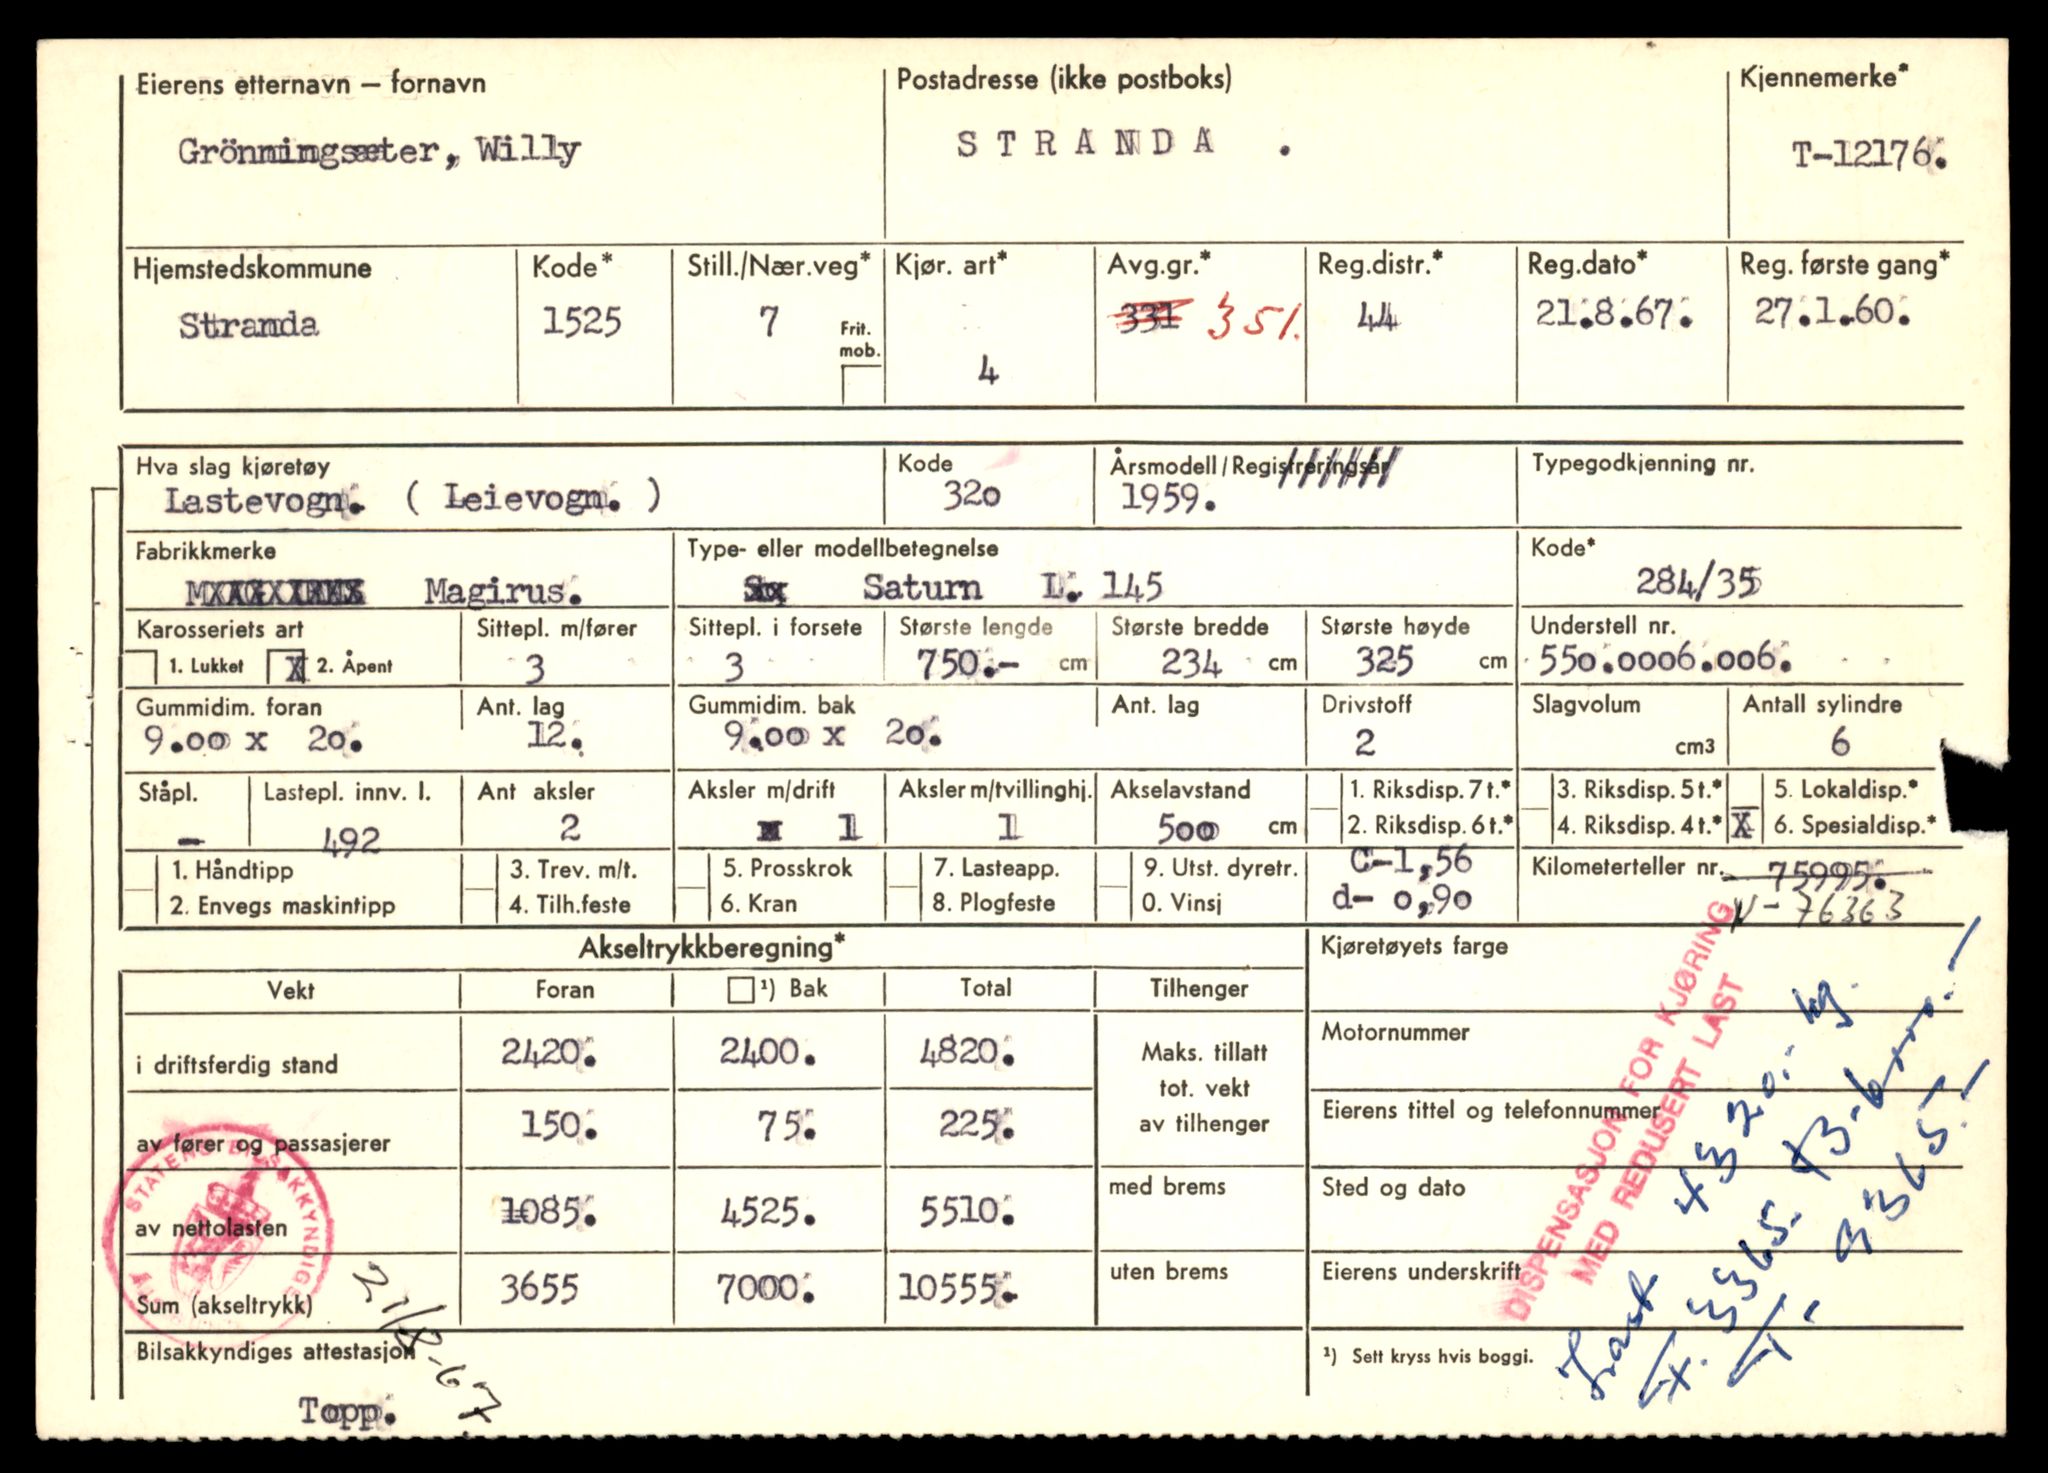 Eierens etternavn – fornavn
Grönningsæter, Willy
Postadresse (ikke postboks)
STRANDA .
Kjennemerke*
T-12176.
Hjemstedskommune
Stranda
Kode*
1525
Still./Nær.veg*
7
Frit. mob.
Kjør. art*
4
Avg.gr.*
331 351.
Reg.distr.*
44
Reg.dato*
21.8.67.
Reg. første gang*
27.1.60.
Hva slag kjøretøy
Lastevogn. ( Leievogn. )
Kode
320
Årsmodell/Registreringsår
1959.
Typegodkjenning nr.
Fabrikkmerke
Magirus.
Type- eller modellbetegnelse
Saturn L. 145
Kode*
284/35
Karosseriets art
1. Lukket X 2. Åpent
Sittepl. m/fører
3
Sittepl. i forsete
3
Største lengde
750.- cm
Største bredde
234 cm
Største høyde
325 cm
Understell nr.
550.0006.006.
Gummidim. foran
9.00 x 20.
Ant. lag
12.
Gummidim. bak
9.00 x 20.
Ant. lag
Drivstoff
2
Slagvolum
cm3
Antall sylindre
6
Ståpl.
-
Lastepl. innv. l.
492
Ant aksler
2
Aksler m/drift
1
Aksler m/tvillinghj.
1
Akselavstand
500 cm
1. Riksdisp. 7 t.*
2. Riksdisp. 6 t.*
3. Riksdisp. 5 t.*
4. Riksdisp. 4 t.*
X
5. Lokaldisp.*
6. Spesialdisp.*
1. Håndtipp
2. Envegs maskintipp
3. Trev. m/t.
4. Tilh.feste
5. Prosskrok
6. Kran
7. Lasteapp.
8. Plogfeste
9. Utst. dyretr.
0. Vinsj
C-1,56
d- 0,90
Kilometerteller nr.
75995.
N - 76363
Akseltrykkberegning*
Vekt Foran ¹) Bak Total Tilhenger
i driftsferdig stand 2420. 2400. 4820.
Maks. tillatt
tot. vekt
av tilhenger
av fører og passasjerer 150. 75. 225.
av nettolasten 1085. 4525. 5510.
med brems
Sum (akseltrykk) 3655 7000. 10555.
uten brems
Bilsakkyndiges attestasjon
21/8-67
Topp.
STATENS BILSAKKYNDIGE
Kjøretøyets farge
Motornummer
Eierens tittel og telefonnummer
Sted og dato
Eierens underskrift
¹) Sett kryss hvis boggi.
DISPENSASJON FOR KJØRING
MED REDUSERT LAST
Last 4320.- kg.
F. 3365.
T. 9365.-